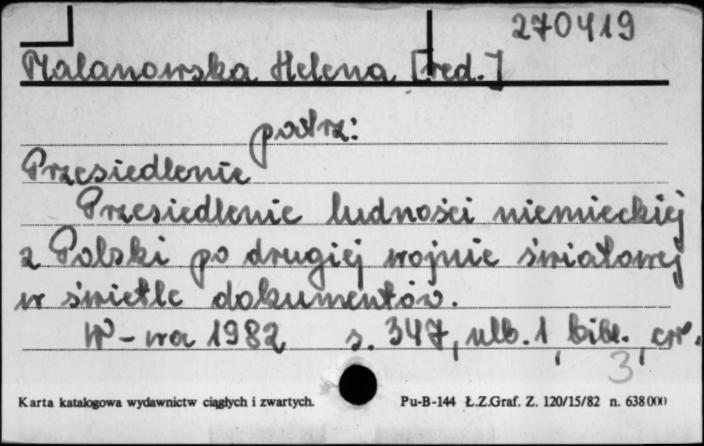 270419
Malanowska Helena [red.]
patrz:
Przesiedlenie
Przesiedlenie ludności niemieckiej
z Polski po drugiej wojnie światowej
w świetle dokumentów.
W-wa 1982 s. 347, nlb. 1, bibl., err.
3
Karta katalogowa wydawnictw ciągłych i zwartych. Pu-B-144 Ł.Z.Graf. Z. 120/15/82 n. 638000